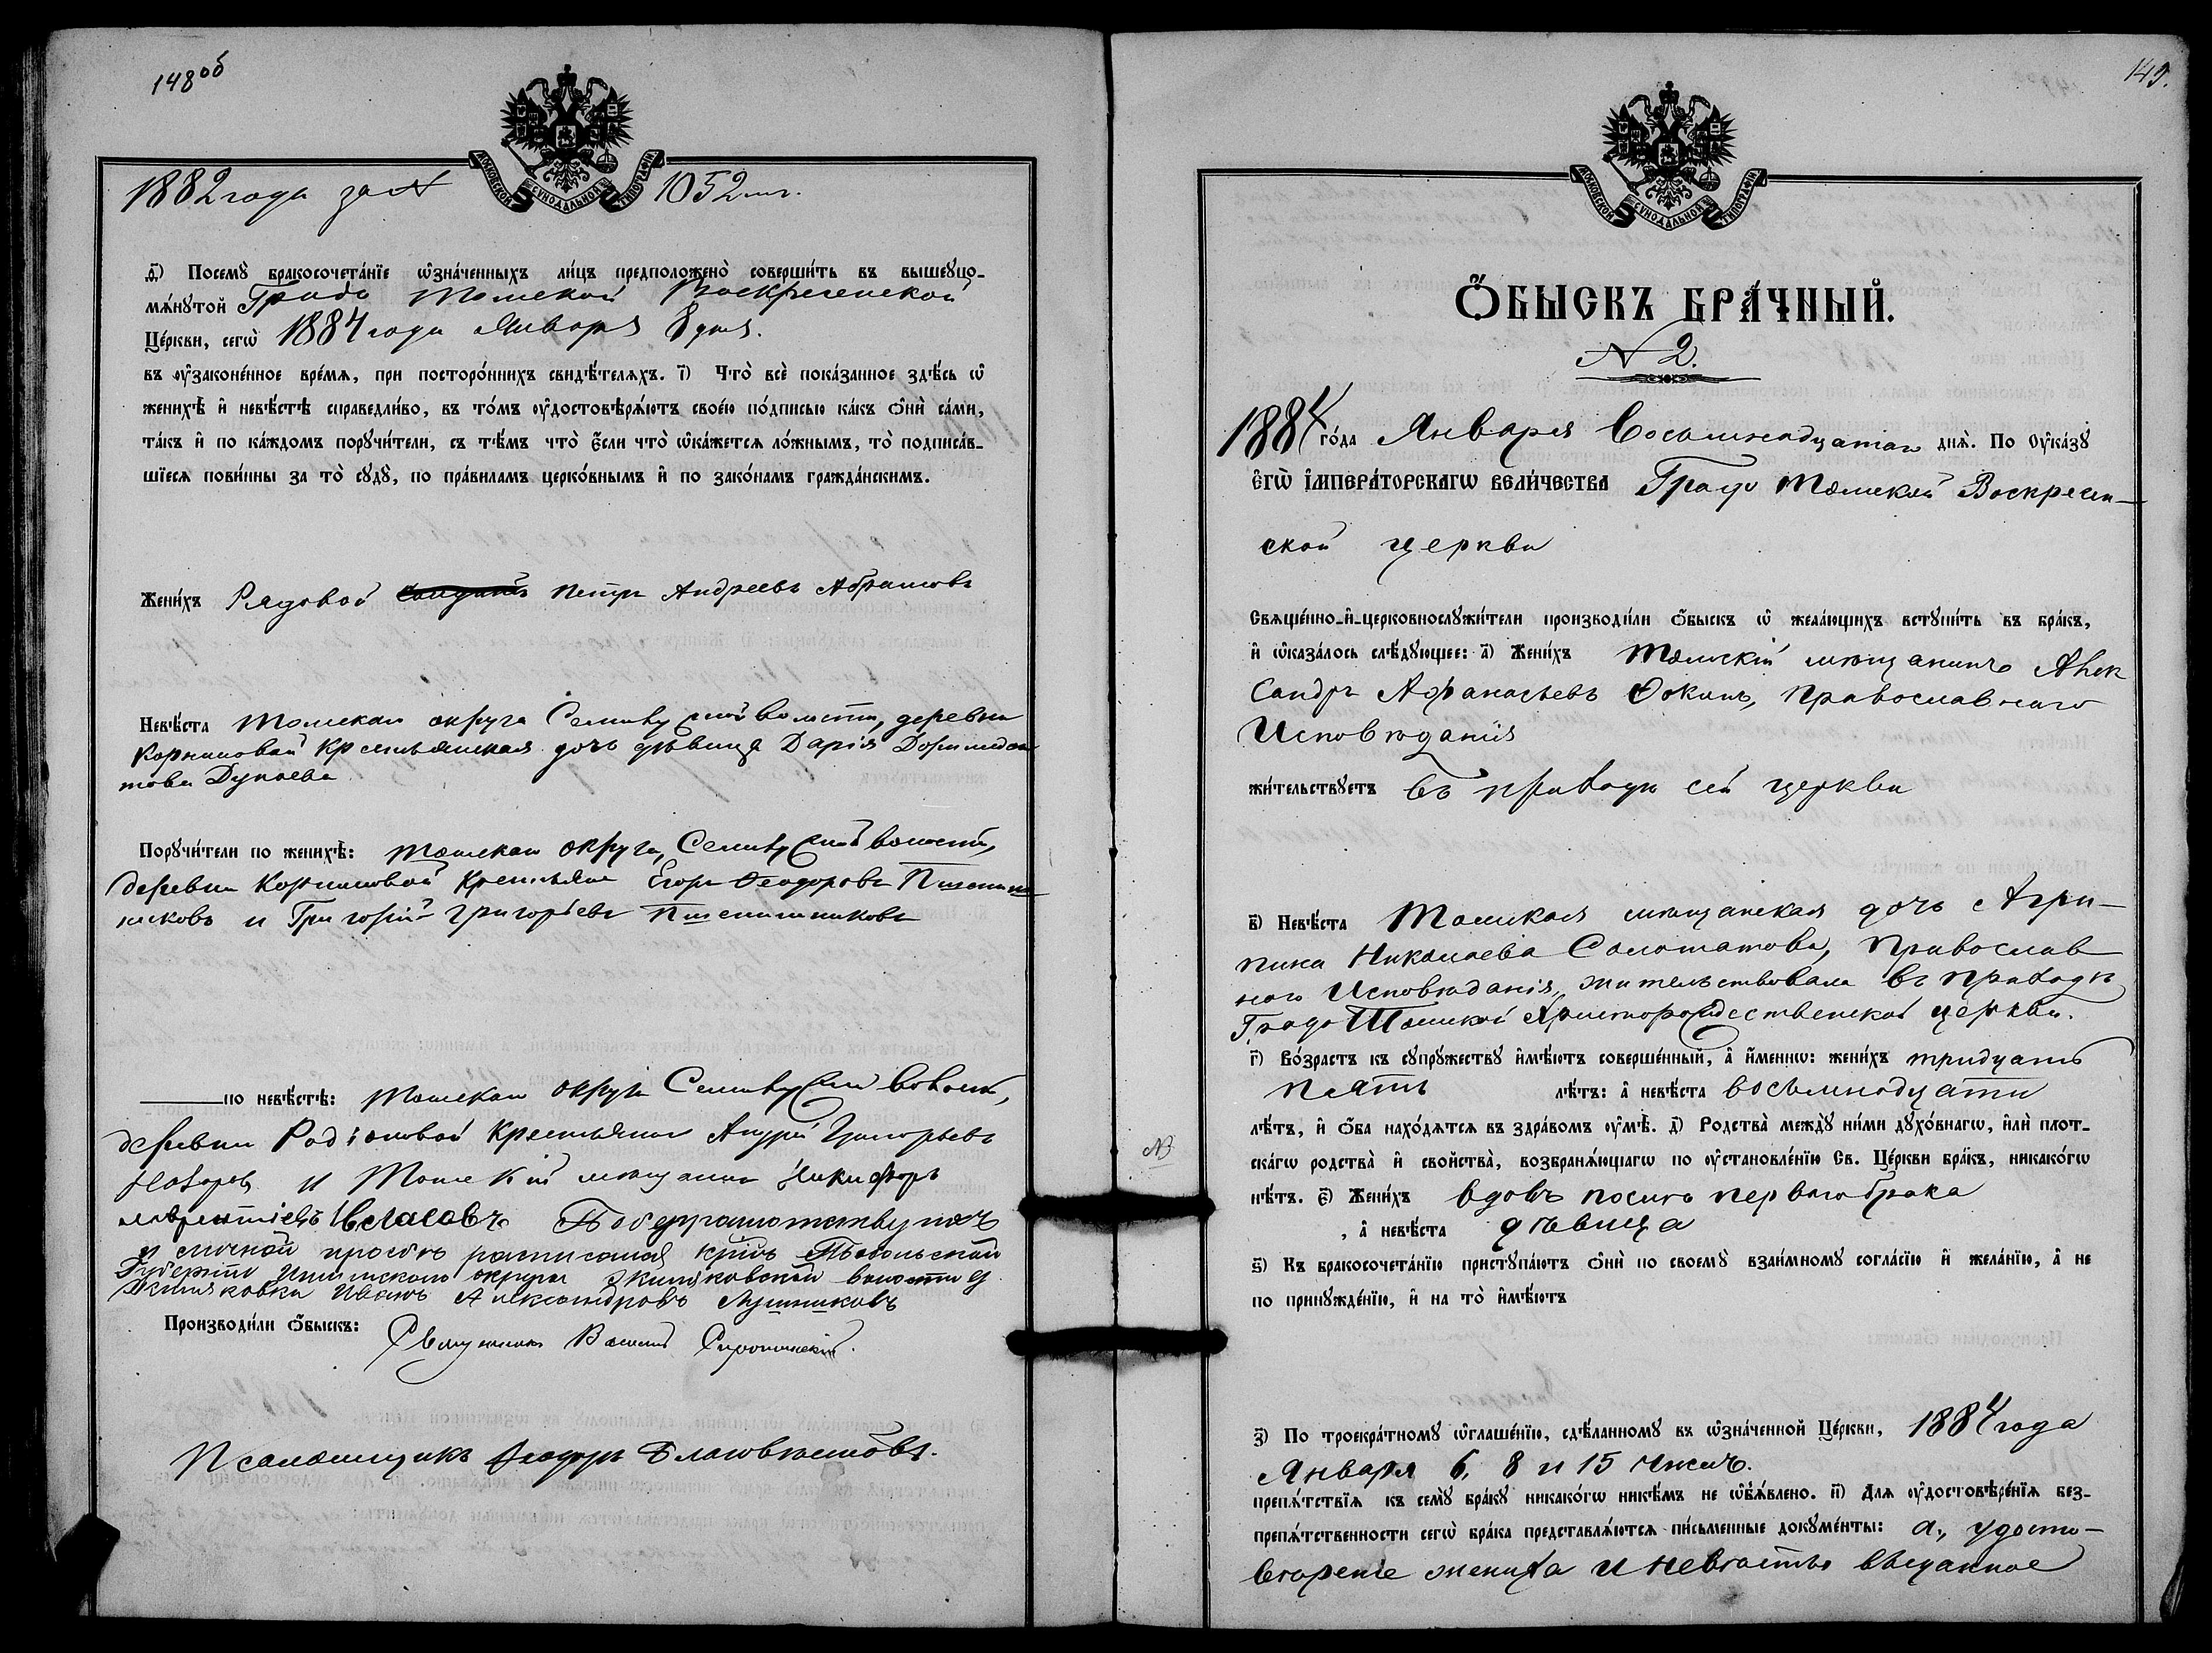 148об
МОСКОВСКОЙ СѴНОДАЛЬНОЙ ТИПОГРАФІИ.
1882 года за № 1052мъ.
д҃) Посемꙋ̀ бракосочета́нїе ѡ҆зна́ченныхъ ли́цъ предположено̀ соверши́ть въ вышеꙋпо-
мѧ́нꙋтой Градо Томской Воскресенской
Це́ркви, сегѡ̀ 1884 года Января 8 дня.
въ ᲂу҆законе́нное вре́мѧ, при посторо́ннихъ свидѣ́телѧхъ. і҃) Что̀ всѐ пока́занное здѣ́сь ѡ҆
женихѣ̀ и҆ невѣ́стѣ справедли́во, въ то́мъ ᲂу҆достовѣрѧ́ютъ свое́ю по́дписью ка́къ ѻ҆нѝ са́ми,
та́къ и҆ по ка́ждомъ порꙋчи́тели, съ тѣ́мъ что̀ є҆́сли что̀ ѡ҆ка́жетсѧ ло́жнымъ, то̀ подписа́в-
шїесѧ пови́нны за то̀ сꙋдꙋ̀, по пра́виламъ церко́внымъ и҆ по зако́намъ гражда́нскимъ.
Жени́хъ Рядовой Петръ Андреевъ Абрамовъ
Невѣ́ста Томскаго округа Семилужной волости, деревни
Корниловой Крестьянская дочь дѣвица Дарія Доримедон
това Дунаева
Порꙋчи́тели по женихѣ̀: Томскаго округа, Семилужной волости,
деревни Корниловой Крестьяне Егоръ Феодоровъ Пшенич
никовъ и Григорій Григорьевъ Пшенишниковъ
по невѣ́стѣ: Томскаго округа Семилужной волости,
деревни Родіоновой Крестьянин Андрей Григорьевъ
и Томскій мещанинъ Никифоръ
Власовъ
и личной прозбѣ расписался крест Тобольской
Губерніи Ишимскаго округа волости д
Иванъ Александровъ Лушниковъ
Производи́ли ѻ҆́быскъ: Священникъ Василій Сиропинскій.
Псаломщикъ Феодоръ Благовѣстовъ.
149.
МОСКОВСКОЙ СѴНОДАЛЬНОЙ ТИПОГРАФІИ.
Ѻ҆́БЫСКЪ БРА́ЧНЫЙ.
№ 2.
1884 го́да Января Восьмнадцатаго днѧ̀. По Оу҆ка́зꙋ
є҆гѡ̀ і҆мпера́торскагѡ вели́чества Градо Томской Воскресен-
ской церкви
Свѧще́нно-и҆-церковнослꙋжи́тели производи́ли ѻ҆́быскъ ѡ҆ жела́ющихъ встꙋпи́ть въ бра́къ,
и҆ ѡ҆каза́лось слѣ́дꙋющее: а҃) Жени́хъ Томскій мѣщанинъ Алек
сандръ Афанасьевъ Фокинъ, православнаго
Исповѣданія
жи́тельствꙋетъ въ приходѣ сей церкви
в҃) Невѣ́ста Томская мѣщанская дочь Агри-
пина Николаева Соломатова, православ
наго Исповѣданія, жительствовала въ приходѣ
Градо Томской Христорождественской церкви.
г҃) Во́зрастъ къ сꙋпрꙋ́жествꙋ и҆мѣ́ютъ соверше́нный, а҆ и҆́меннѡ: жени́хъ тридцать
пять лѣ́тъ: а҆ невѣ́ста восьмнадцати
лѣ́тъ, и҆ ѻ҆́ба нахо́дѧтсѧ въ здра́вомъ ᲂу҆мѣ̀. д҃) Родства̀ междꙋ̀ ни́ми дꙋхо́внагѡ, и҆лѝ плот-
ска́гѡ родства̀ и҆ сво́йства̀, возбранѧ́ющагѡ по ᲂу҆становле́нїю Св. Це́ркви бра́къ, никако́гѡ
нѣ́тъ. є҃) Жени́хъ вдовъ послѣ перваго брака
, а҆ невѣ́ста дѣвица
ѕ҃) Къ бракосочета́нїю приступа́ютъ ѻ҆нѝ по своемꙋ̀ взаи́мномꙋ согла́сїю и҆ жела́нїю, а҆ не
по принꙋжде́нїю, и҆ на то̀ и҆мѣ́ютъ
з҃) По троекра́тномꙋ ѡ҆глаше́нїю, сдѣ́ланномꙋ въ ѡ҆зна́ченной Це́ркви, 1884 года
Января 6, 8 и 15 чиселъ.
препѧ́тствїѧ къ семꙋ̀ бра́кꙋ никако́гѡ никѣ́мъ не ѡ҆бъѧ́влено. и҃) Длѧ ᲂу҆достовѣре́нїѧ без-
препѧ́тственности сегѡ̀ бра́ка представлѧ́ютсѧ пи́сьменные докꙋме́нты: а., удосто-
вѣреніе жениха и невѣсты выданное